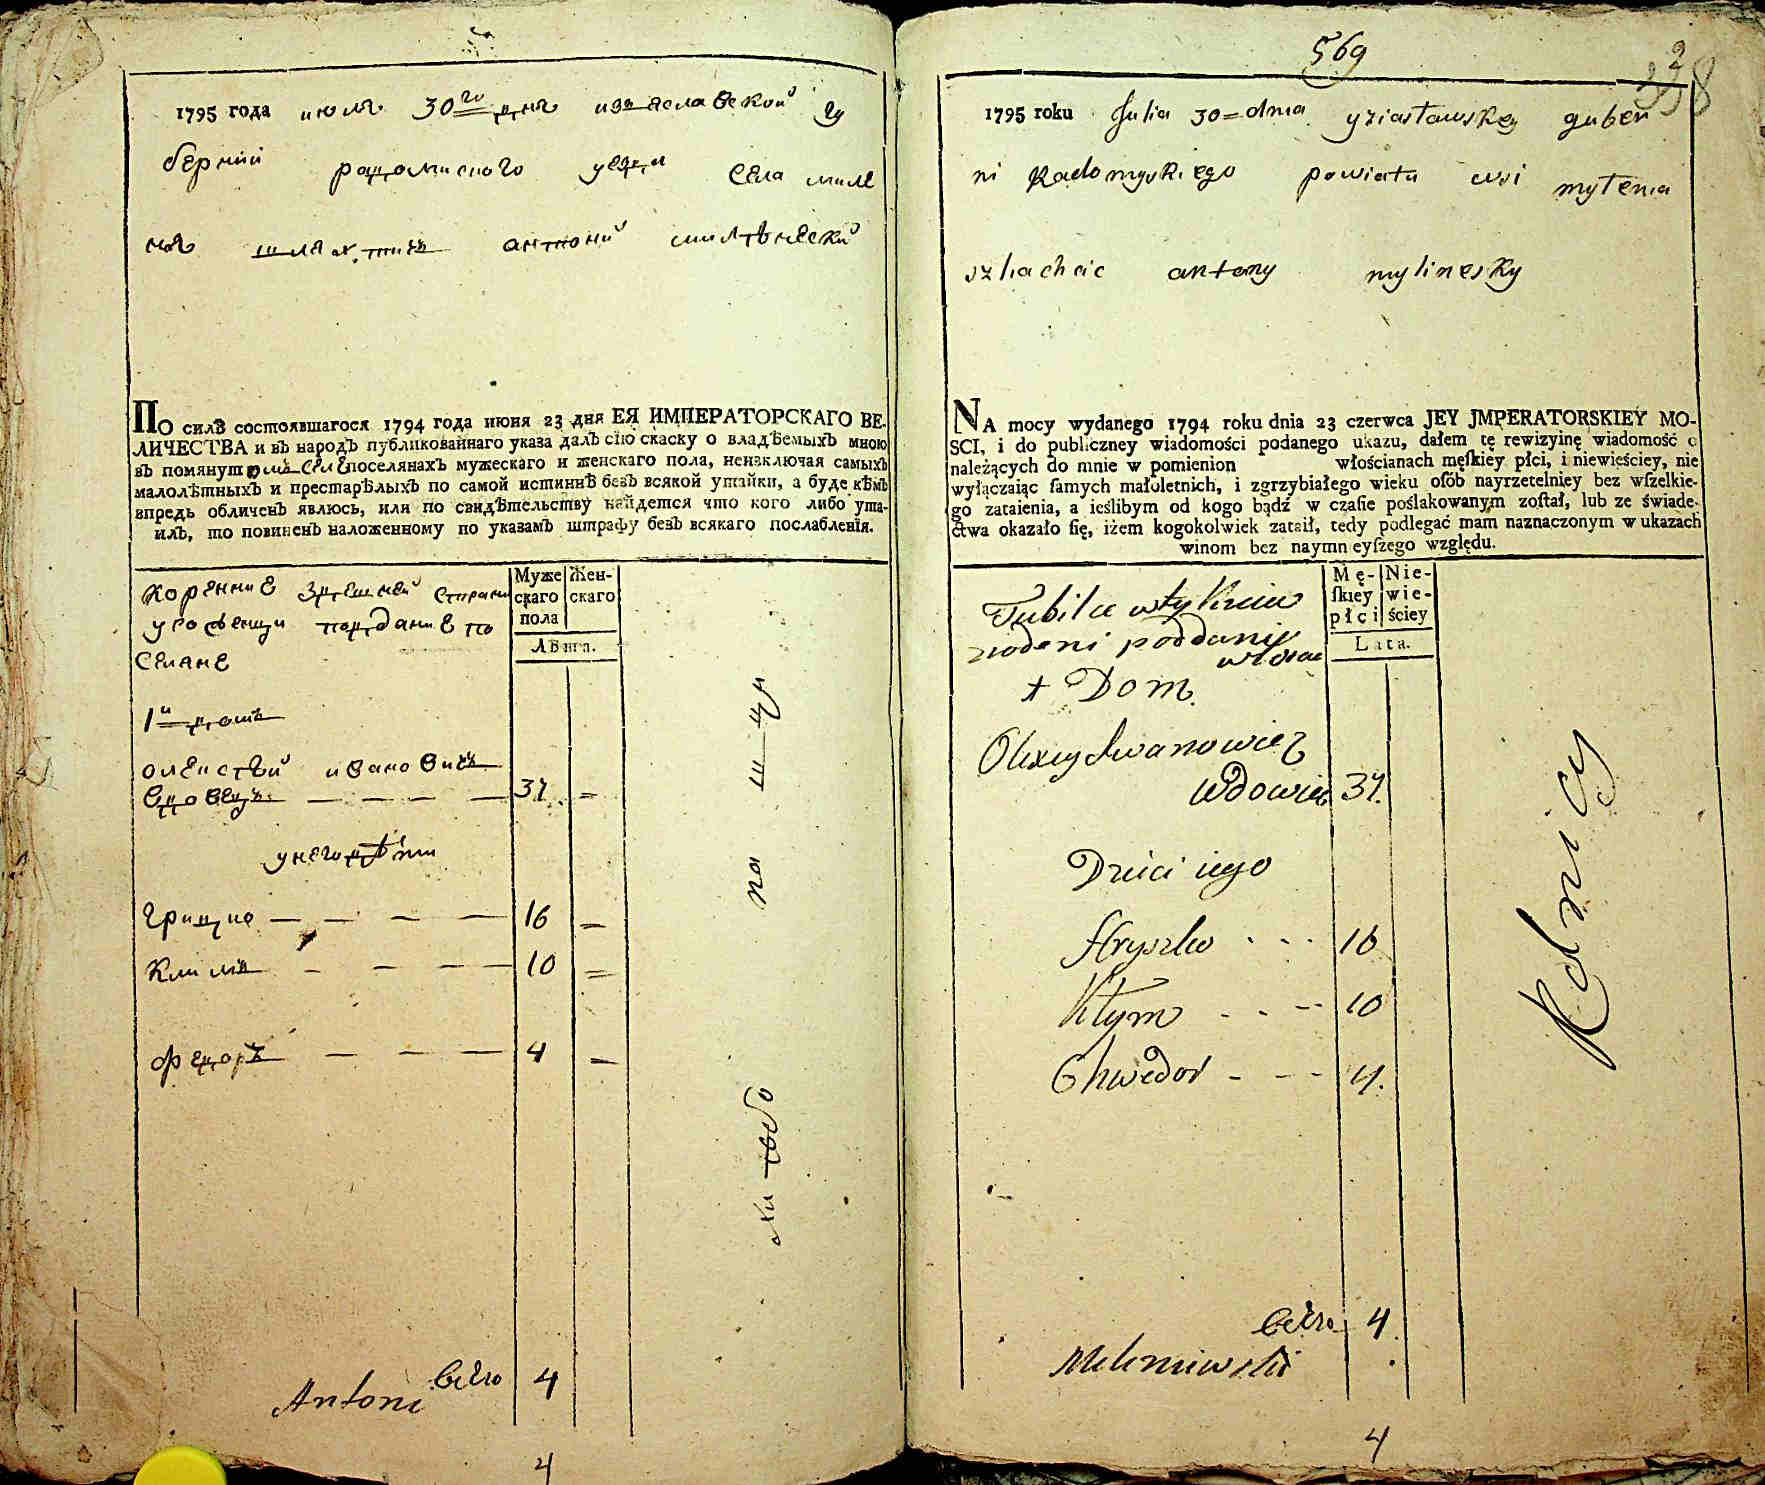 1795 года июля 30го дня изяславской гу
берний радомисного уезда села миле
нья шляхтичъ антоний милѣнеский
ПО силѣ состоявшагося 1794 года июня 23 дня ЕЯ ИМПЕРАТОРСКАГО ВЕ-
ЛИЧЕСТВА и въ народъ публикованнаго указа далъ сїю скаску о владѣемыхъ мною
въ помянутомъ селе поселянахъ мужескаго и женскаго пола, неизключая самыхъ
малолѣтныхъ и престарѣлыхъ по самой истиннѣ безъ всякой утайки, а буде кѣмъ
впредь обличенъ явлюсь, или по свидѣтельству найдется что кого либо ута-
илъ, то повиненъ наложенному по указамъ штрафу безъ всякаго послабленія.
Муже
скаго
пола
Жен-
скаго
Лѣта.
коренние здешней
поддание по
селяне
1й домъ
олексѣй ивановичъ
вдовецъ — — — — 37 =
у него дѣти
грицко — — — — 16 —
климъ — — — — 10 =
федоръ — — — 4 —
всего 4
Antoni
4
569
2
1795 roku Julia 30 = dnia yziasławskey guber
ni Radomyskiego powiatu wsi mylenia
szliachcic antony mylinesky
NA mocy wydanego 1794 roku dnia 23 czerwca JEY JMPERATORSKIEY MO-
SCI, i do publiczney wiadomości podanego ukazu, dałem tę rewizyinę wiadomość o
należących do mnie w pomienion włościanach męſkiey płci, i niewieściey, nie
wyłączaiąc ſamych małoletnich, i zgrzybiałego wieku oſób nayrzetelniey bez wſzelkie-
go zataienia, a ieślibym od kogo bądź w czaſie poślakowanym zoſtał, lub ze świade-
ctwa okazało ſię, iżem kogokolwiek zataił, tedy podlegać mam naznaczonym w ukazach
winom bez naymnieyſzego względu.
Mę-
ſkiey
płci
Nie-
wie-
ściey
Lata.
poddanij
1 Dom
Olexy Iwanowicz
Wdowiec 37.
Dzieci iego
Hryszko - - - 16
Kłym - - -- 10
Chwedor - - -- 4.
всего 4
Mileniewski
4